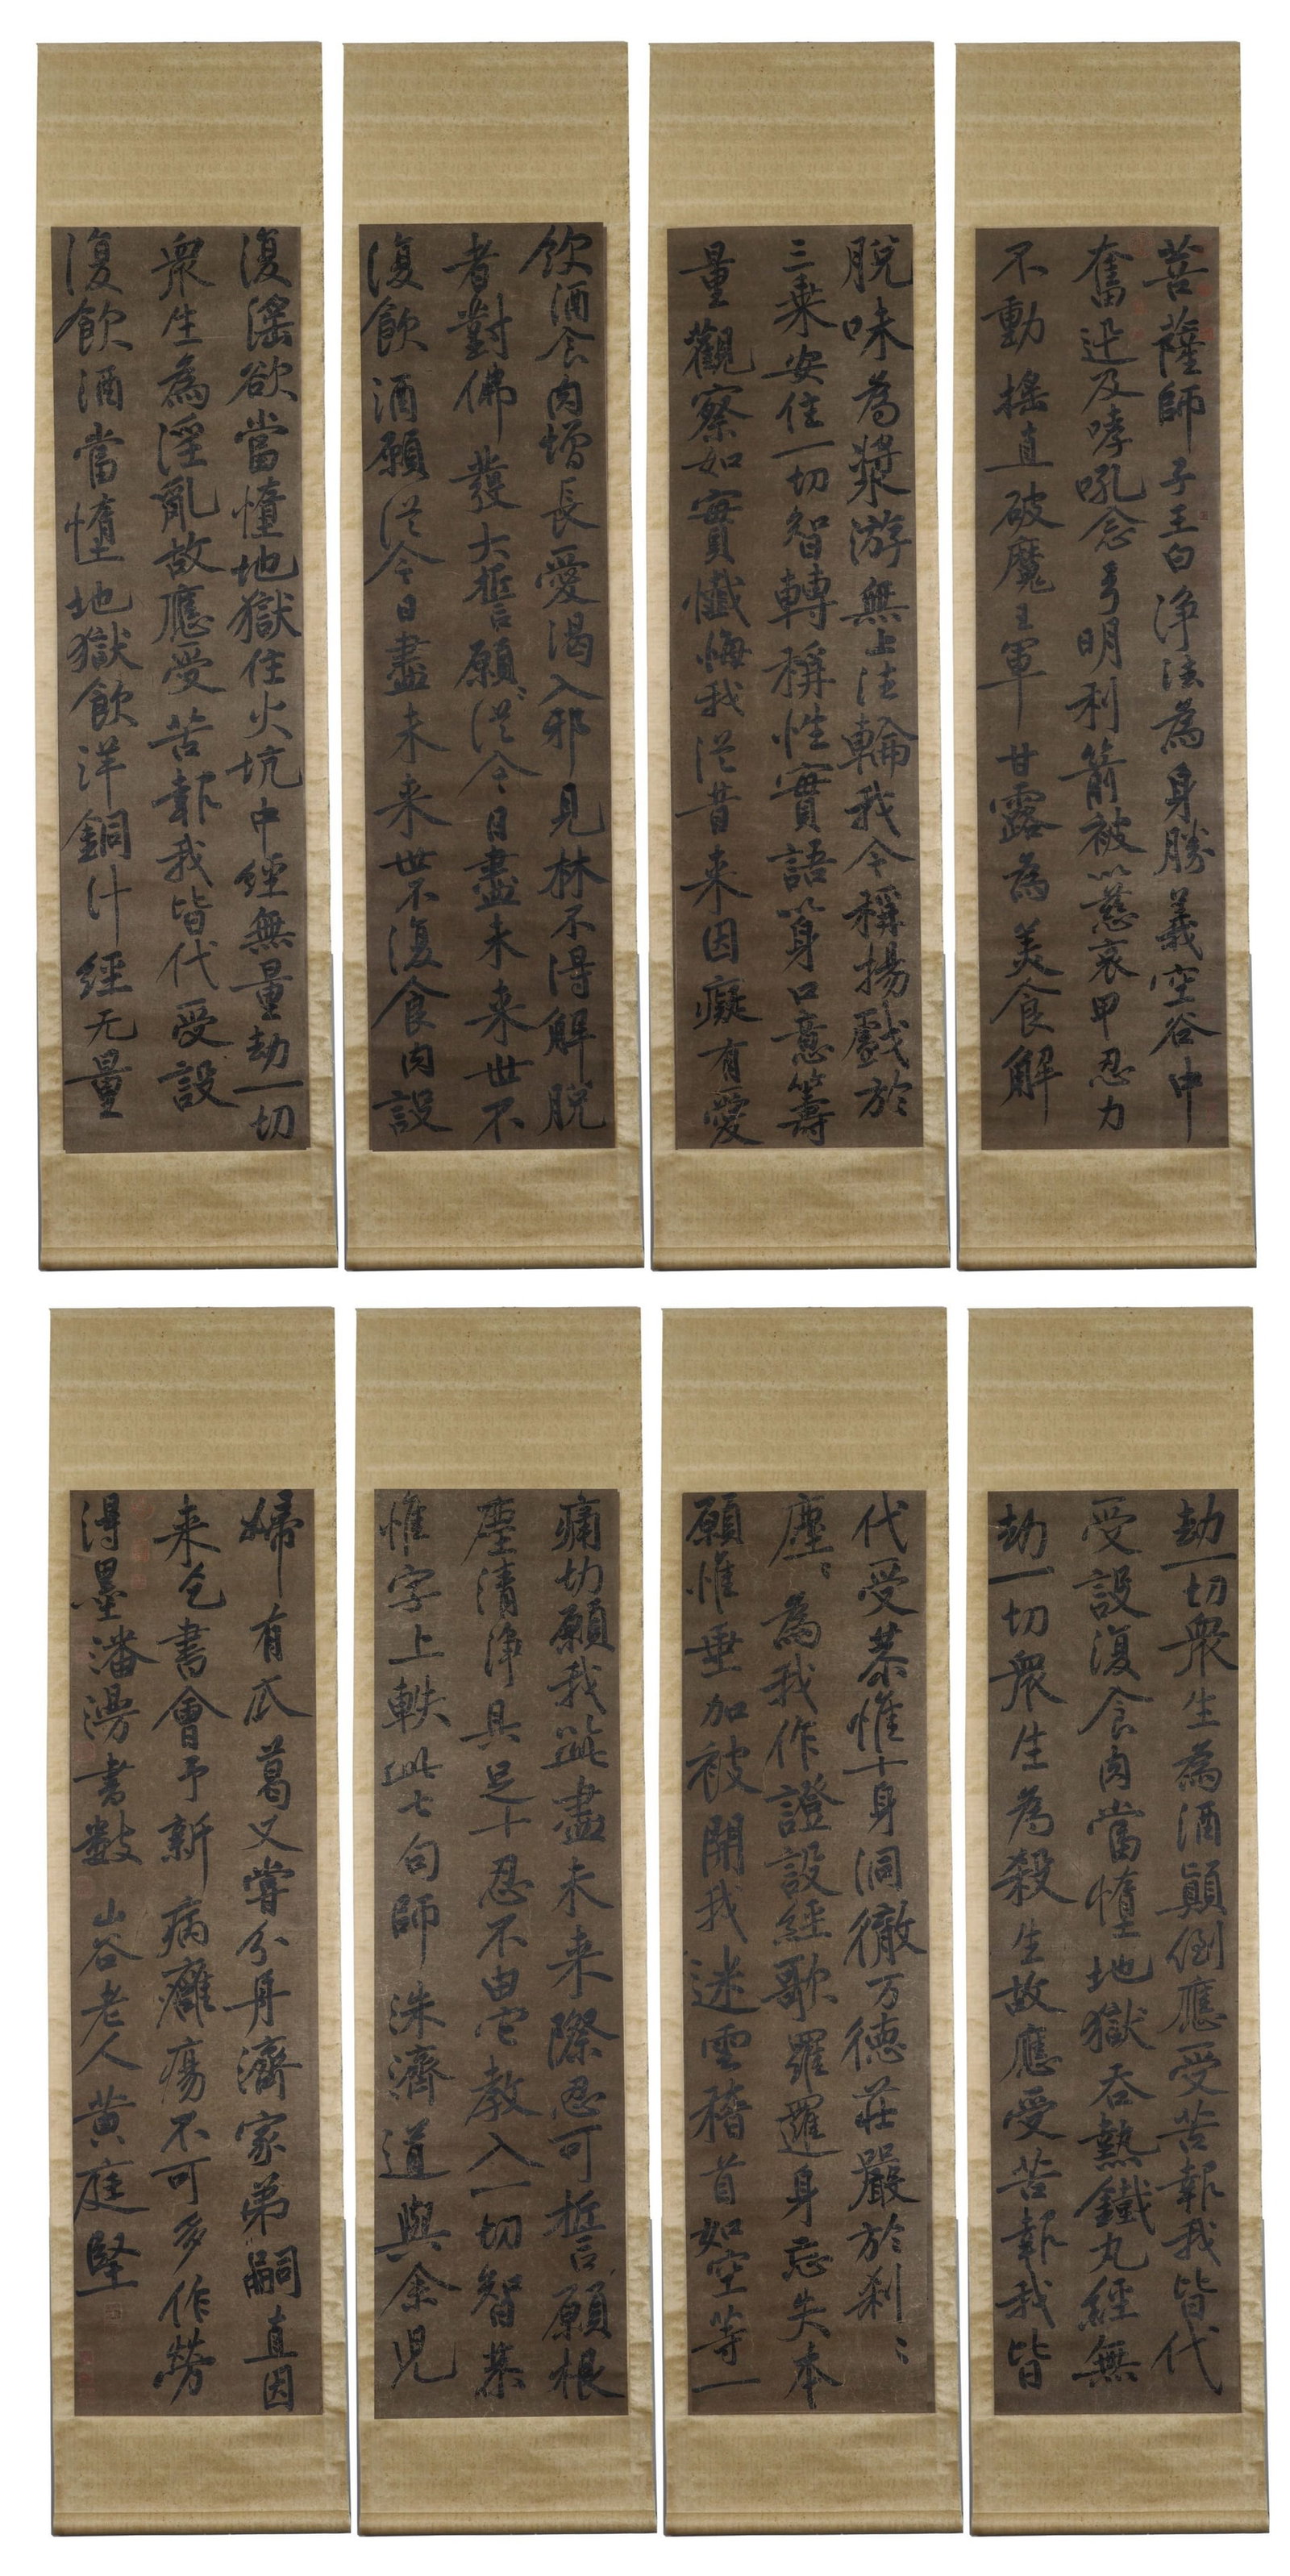 菩薩師子王白淨法為身勝義空谷中
奮迅及哮吼念弓明利箭被以慈哀甲忍力
不動搖直破魔王軍甘露為美食解
脫味為漿游無上法輪我今稱揚戲於
三乗安住一切智轉稱性實語以身口意籌
量觀察如實懺悔我從昔来因癡有愛
飲酒食肉增長愛渴入邪見林不得解脫
者對佛發大誓願〻從今日盡未来世不
復飲酒願從今日盡未来世不復食肉設
復婬欲當墮地獄住火坑中經無量劫一切
衆生為淫亂故應受苦報我皆代受設
復飲酒當墮地獄飲洋銅汁經无量
劫一切衆生為酒顛倒應受苦報我皆代
受設復食肉當墮地獄吞熱鐵丸經無
劫一切衆生為殺生故應受苦報我皆
代受恭惟十身洞徹万德莊嚴於刹〻
塵〻為我作證設經歌羅邏身忘失本
願惟垂加被開我迷雲稽首如空等一
痛切願我從此盡未来際忍可誓言願根
塵清淨具足十忍不由它教入一切智恭
惟字上軼此七句師洙濟道與余兒
婦有瓜葛又嘗分舟濟家弟嗣直因
来乞書會予新病癰瘍不可多作勞
得墨瀋漫書數 山谷老人黄庭堅